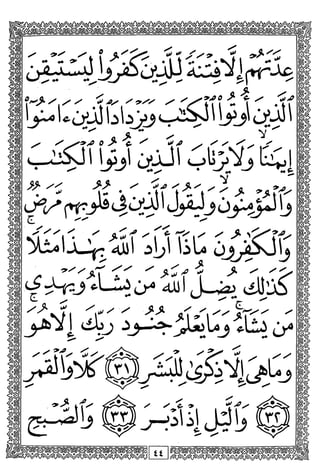 عِدَّتَهُمْ إِلَّا فِتْنَةً لِّلَّذِينَ كَفَرُوا۟ لِيَسْتَيْقِنَ
ٱلَّذِينَ أُوتُوا۟ ٱلْكِتَٰبَ وَيَزْدَادَ ٱلَّذِينَ ءَامَنُوٓا۟
إِيمَٰنًا ۙ وَلَا يَرْتَابَ ٱلَّذِينَ أُوتُوا۟ ٱلْكِتَٰبَ
وَٱلْمُؤْمِنُونَ ۙ وَلِيَقُولَ ٱلَّذِينَ فِى قُلُوبِهِم مَّرَضٌ
وَٱلْكَٰفِرُونَ مَاذَآ أَرَادَ ٱللَّهُ بِهَٰذَا مَثَلًا ۚ
كَذَٰلِكَ يُضِلُّ ٱللَّهُ مَن يَشَآءُ وَيَهْدِى
مَن يَشَآءُ ۚ وَمَا يَعْلَمُ جُنُودَ رَبِّكَ إِلَّا هُوَ ۚ
وَمَا هِىَ إِلَّا ذِكْرَىٰ لِلْبَشَرِ ٣١ كَلَّا وَٱلْقَمَرِ
٣٢ وَٱلَّيْلِ إِذْ أَدْبَرَ ٣٣ وَٱلصُّبْحِ
٤٤